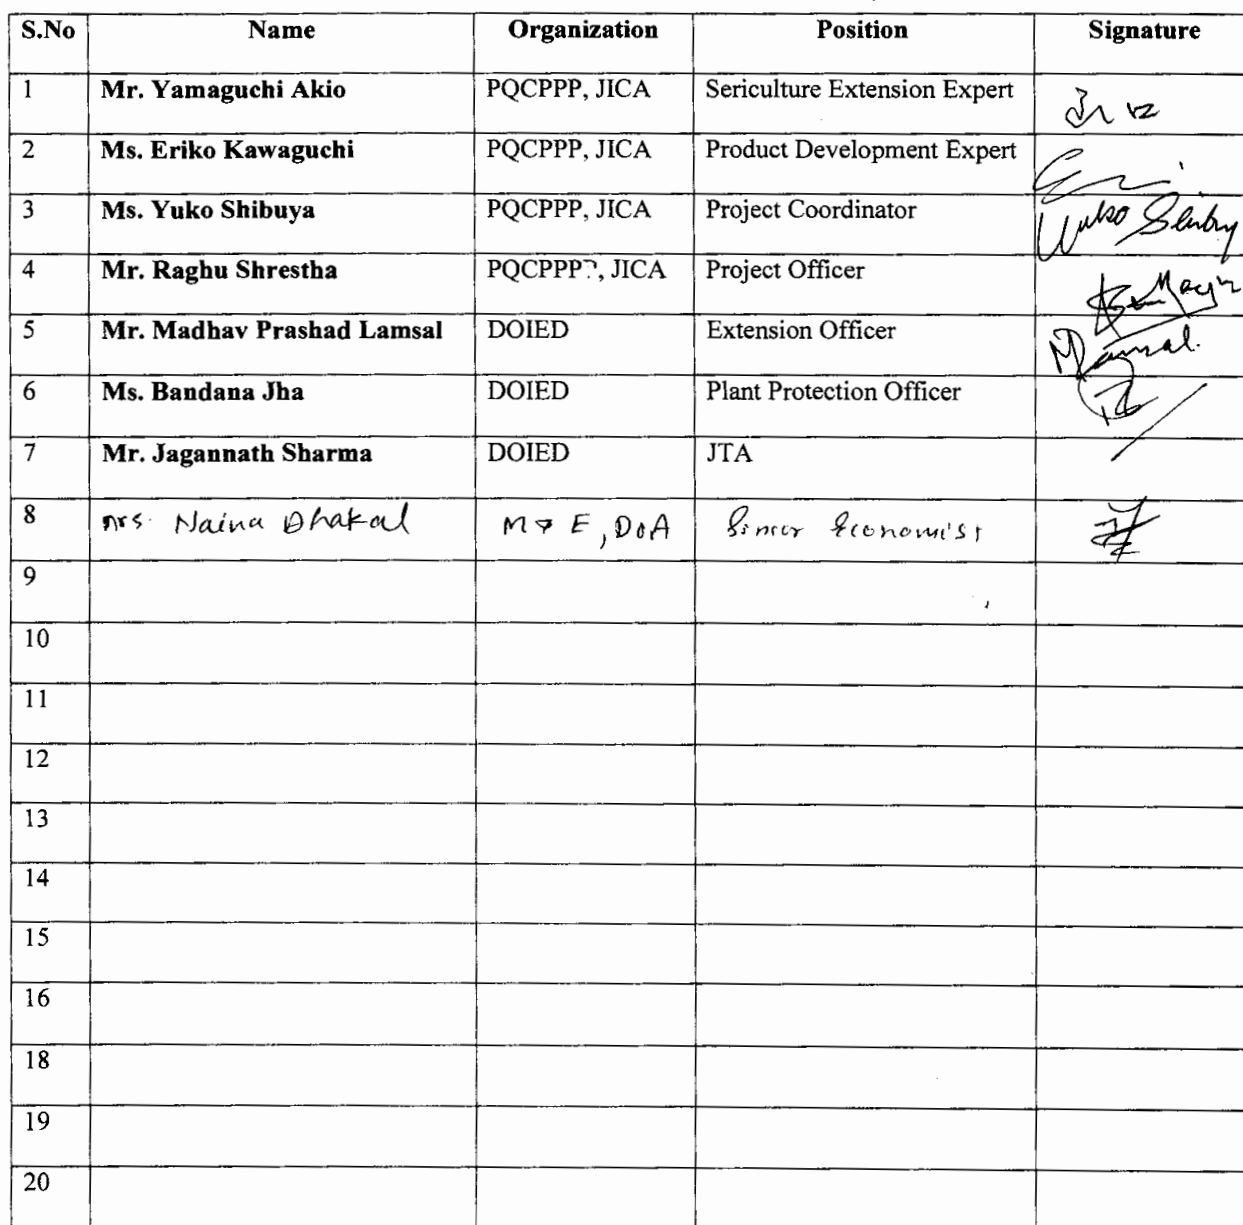 S.No Name Organization Position Signature
1 Mr. Yamaguchi Akio PQCPPP, JICA Sericulture Extension Expert 山口
2 Ms. Eriko Kawaguchi PQCPPP, JICA Product Development Expert
3 Ms. Yuko Shibuya PQCPPP, JICA Project Coordinator Yuko
4 Mr. Raghu Shrestha PQCPPP, JICA Project Officer
5 Mr. Madhav Prashad Lamsal DOIED Extension Officer Lamsal
6 Ms. Bandana Jha DOIED Plant Protection Officer
7 Mr. Jagannath Sharma DOIED JTA
8 Mrs. Naina Dhakal M & E, DoA Economist
9
10
11
12
13
14
15
16
18
19
20